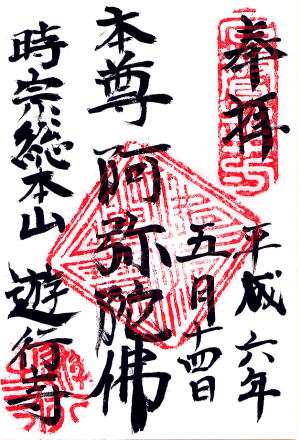 奉拝
平成六年
五月十四日
本尊 阿弥陀佛
時宗総本山 遊行寺